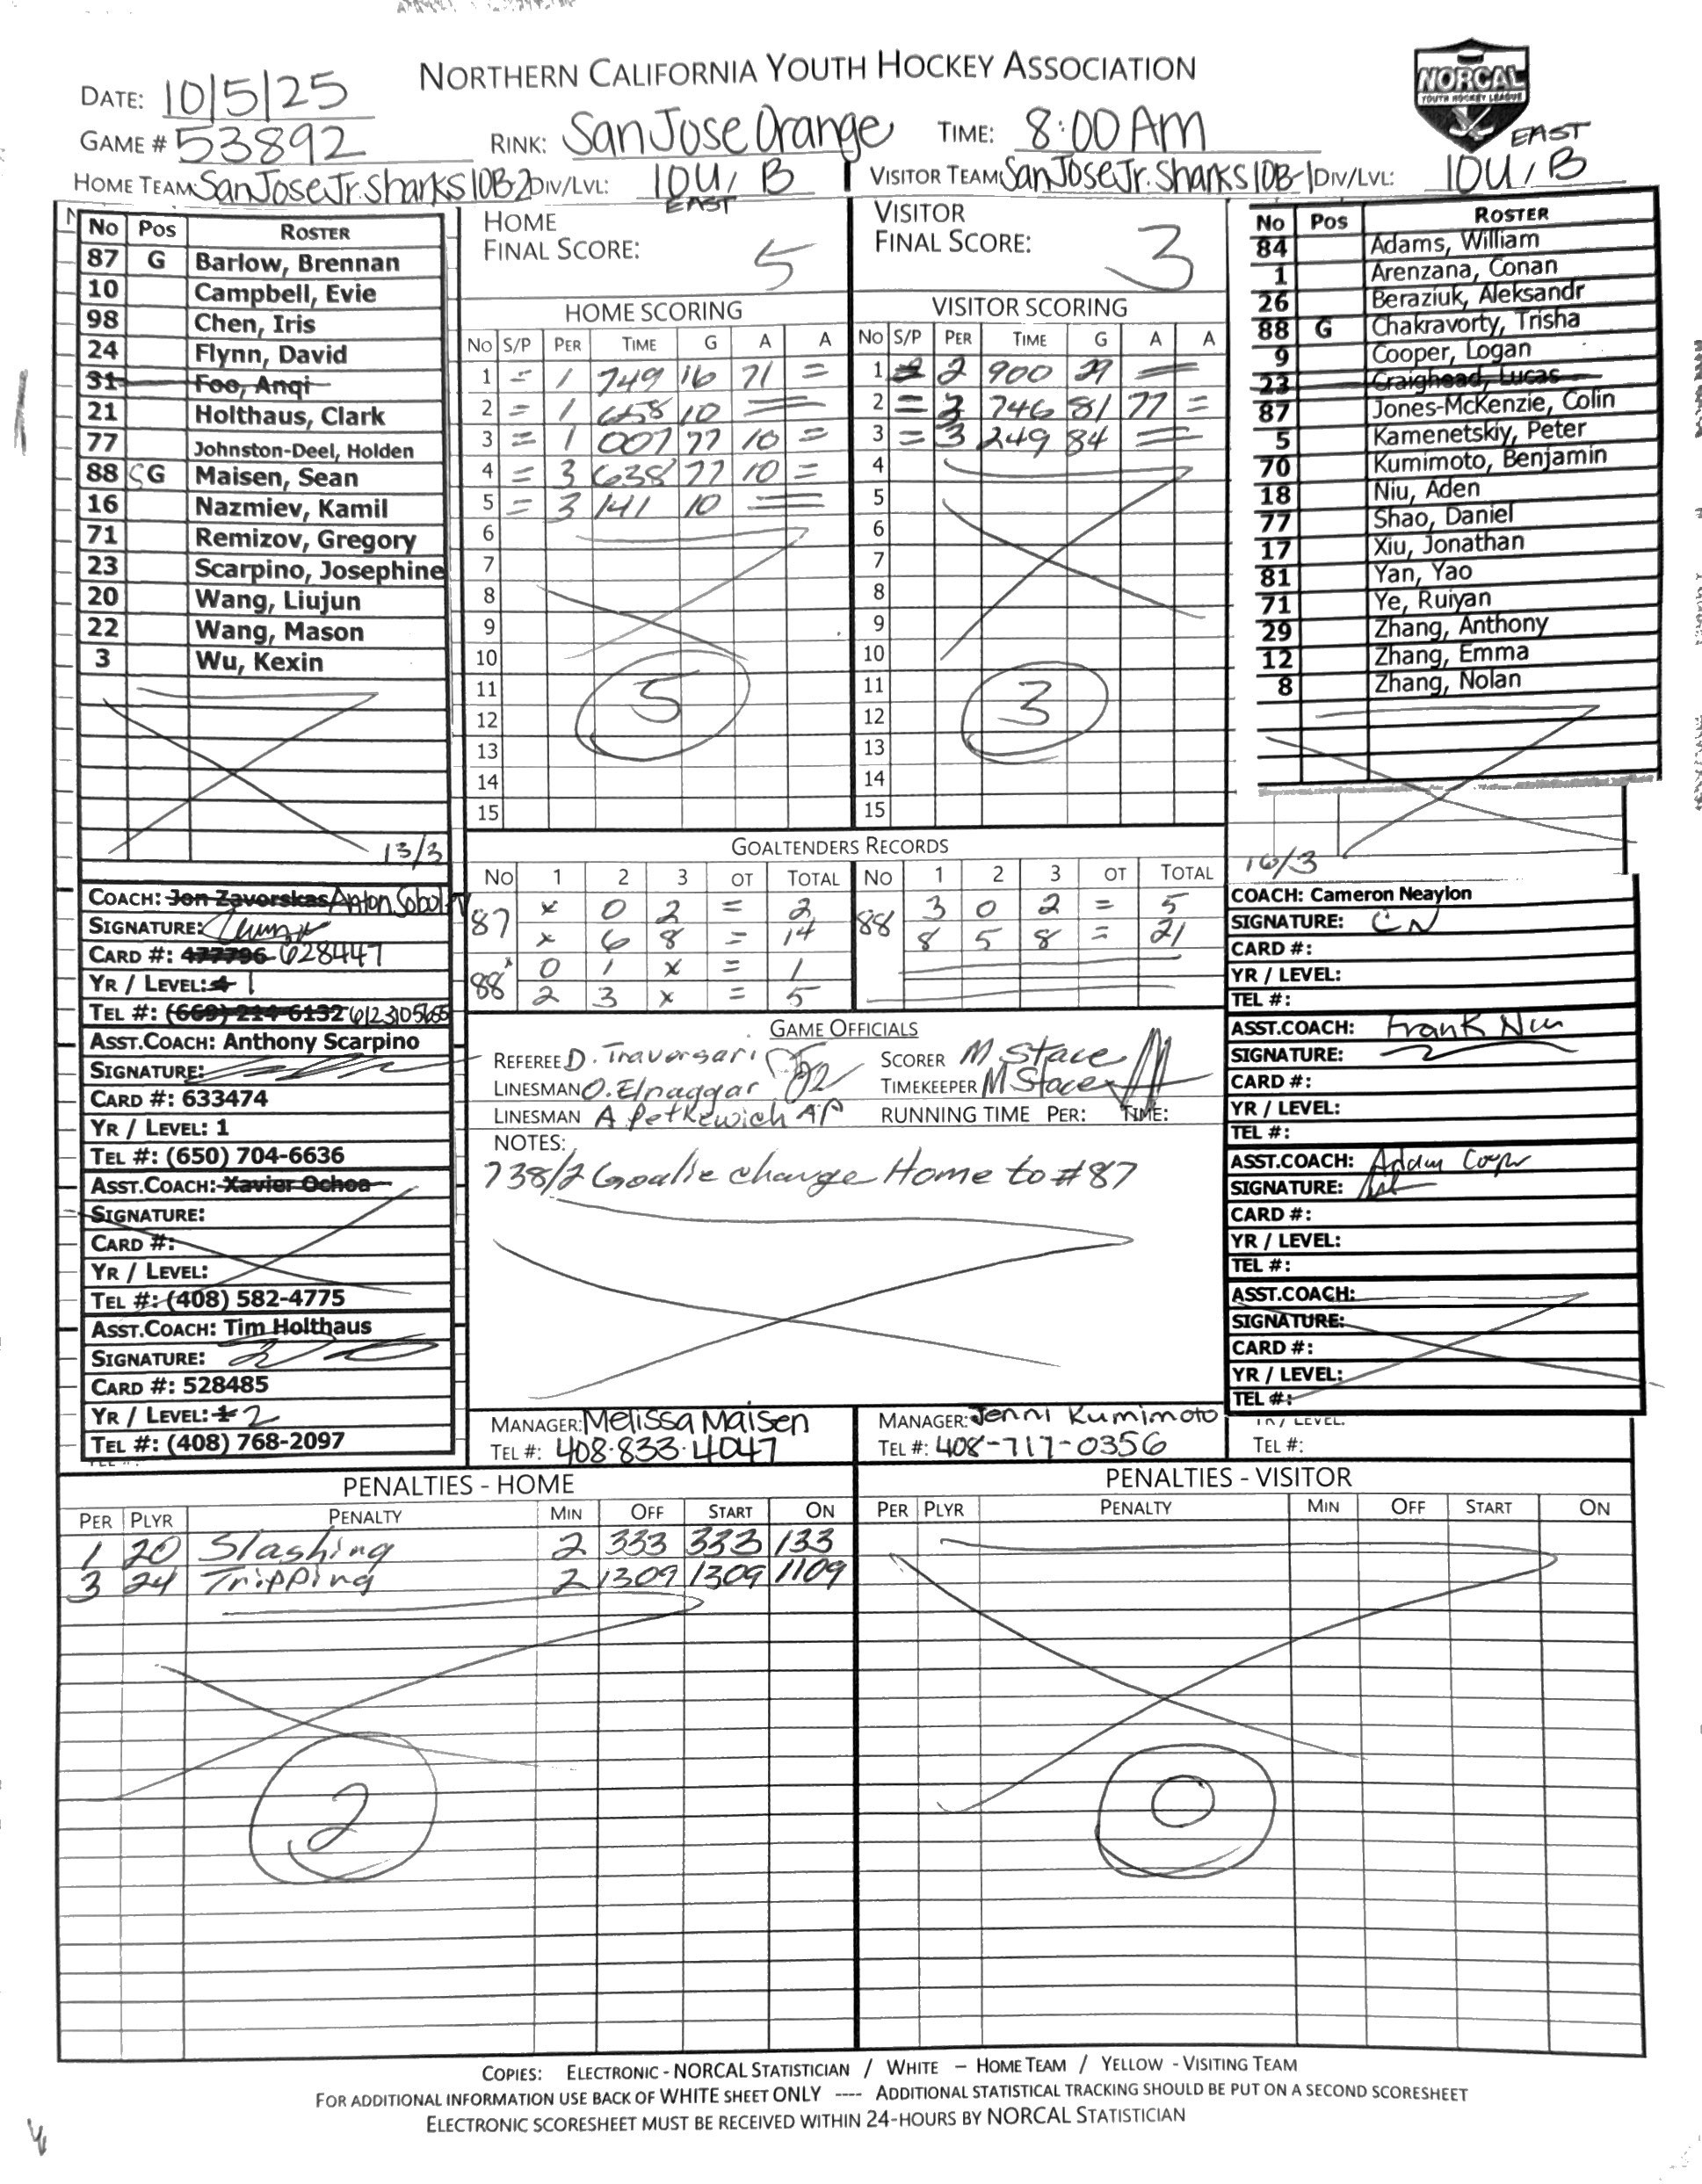 NORTHERN CALIFORNIA YOUTH HOCKEY ASSOCIATION
NORCAL
YOUTH HOCKEY LEAGUE
DATE: 10/5/25
GAME # 53892 RINK: San Jose Orange TIME: 8:00 AM
HOME TEAM: San Jose Jr. Sharks 10B-2 DIV/LVL: 10U, B EAST VISITOR TEAM: San Jose Jr. Sharks 10B-1 DIV/LVL: 10U, B EAST
No Pos ROSTER
87 G Barlow, Brennan
10 Campbell, Evie
98 Chen, Iris
24 Flynn, David
31 Foo, Anqi
21 Holthaus, Clark
77 Johnston-Deel, Holden
88 SG Maisen, Sean
16 Nazmiev, Kamil
71 Remizov, Gregory
23 Scarpino, Josephine
20 Wang, Liujun
22 Wang, Mason
3 Wu, Kexin
13/3
HOME
FINAL SCORE: 5
HOME SCORING
No S/P PER TIME G A A
1 = 1 749 16 71 =
2 = 1 658 10 =
3 = 1 007 77 10 =
4 = 3 638 77 10 =
5 = 3 141 10 =
6
7
8
9
10
11
12
13
14
15
5
VISITOR
FINAL SCORE: 3
VISITOR SCORING
No S/P PER TIME G A A
1 2 900 29 =
2 = 3 746 81 77 =
3 = 3 249 84 =
4
5
6
7
8
9
10
11
12
13
14
15
3
No Pos ROSTER
84 Adams, William
1 Arenzana, Conan
26 Beraziuk, Aleksandr
88 G Chakravorty, Trisha
9 Cooper, Logan
23 Craighead, Lucas
87 Jones-McKenzie, Colin
5 Kamenetskiy, Peter
70 Kumimoto, Benjamin
18 Niu, Aden
77 Shao, Daniel
17 Xiu, Jonathan
81 Yan, Yao
71 Ye, Ruiyan
29 Zhang, Anthony
12 Zhang, Emma
8 Zhang, Nolan
16/3
GOALTENDERS RECORDS
No 1 2 3 OT TOTAL No 1 2 3 OT TOTAL
87 x 0 2 = 2 88 3 0 2 = 5
x 6 8 = 14 8 5 8 = 21
88 0 1 x = 1
2 3 x = 5
COACH: Jon Zavorskas Anton Sobol
SIGNATURE:
CARD #: 477796 628447
YR / LEVEL: 1
TEL #: (669) 214-6132 6123105655
ASST.COACH: Anthony Scarpino
SIGNATURE:
CARD #: 633474
YR / LEVEL: 1
TEL #: (650) 704-6636
ASST.COACH: Xavier Ochoa
SIGNATURE:
CARD #:
YR / LEVEL:
TEL #: (408) 582-4775
ASST.COACH: Tim Holthaus
SIGNATURE:
CARD #: 528485
YR / LEVEL: 1 2
TEL #: (408) 768-2097
GAME OFFICIALS
REFEREE D. Traversari SCORER M Stace
LINESMAN O. Elnaggar TIMEKEEPER M Stace
LINESMAN A Petkewich AP RUNNING TIME PER: TIME:
NOTES:
738/2 Goalie change Home to #87
MANAGER: Melissa Maisen MANAGER: Jenni Kumimoto
TEL #: 408-833-4047 TEL #: 408-717-0356
COACH: Cameron Neaylon
SIGNATURE: CN
CARD #:
YR / LEVEL:
TEL #:
ASST.COACH: Frank Niu
SIGNATURE:
CARD #:
YR / LEVEL:
TEL #:
ASST.COACH: Adam Cooper
SIGNATURE:
CARD #:
YR / LEVEL:
TEL #:
ASST.COACH:
SIGNATURE:
CARD #:
YR / LEVEL:
TEL #:
YR / LEVEL:
TEL #:
PENALTIES - HOME
PER PLYR PENALTY MIN OFF START ON
1 20 Slashing 2 333 333 133
3 24 Tripping 2 1309 1309 1109
2
PENALTIES - VISITOR
PER PLYR PENALTY MIN OFF START ON
0
COPIES: ELECTRONIC - NORCAL STATISTICIAN / WHITE – HOME TEAM / YELLOW - VISITING TEAM
FOR ADDITIONAL INFORMATION USE BACK OF WHITE SHEET ONLY ---- ADDITIONAL STATISTICAL TRACKING SHOULD BE PUT ON A SECOND SCORESHEET
ELECTRONIC SCORESHEET MUST BE RECEIVED WITHIN 24-HOURS BY NORCAL STATISTICIAN